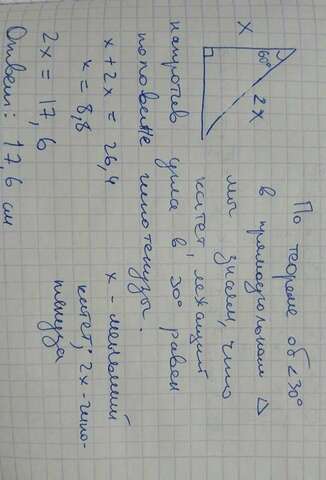 x
60°
2x
По теореме об ∠30°
в прямоугольном △
мы знаем, что
катет, лежащий
напротив угла в 30° равен
половине гипотенузы.
x + 2x = 26,4
x = 8,8
2x = 17,6
Ответ: 17,6 см
x - меньший
катет; 2x - гипо-
тенуза